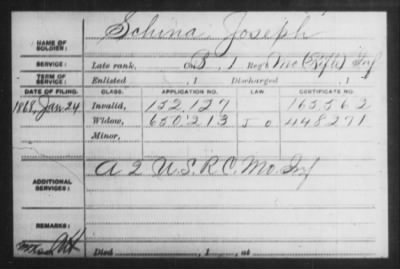 NAME OF SOLDIER: Schina Joseph
SERVICE: Late rank, Co. B, 1 Reg't Mo (Rifle) Inf
TERM OF SERVICE: Enlisted , 1 Discharged , 1
DATE OF FILING. CLASS. APPLICATION NO. LAW. CERTIFICATE NO.
1868, Jan 24 Invalid, 132,127 163,362
Widow, 650213 448271
Minor,
ADDITIONAL SERVICES: A 2 U.S.R.C. Mo. Inf
REMARKS:
Died , 1 , at